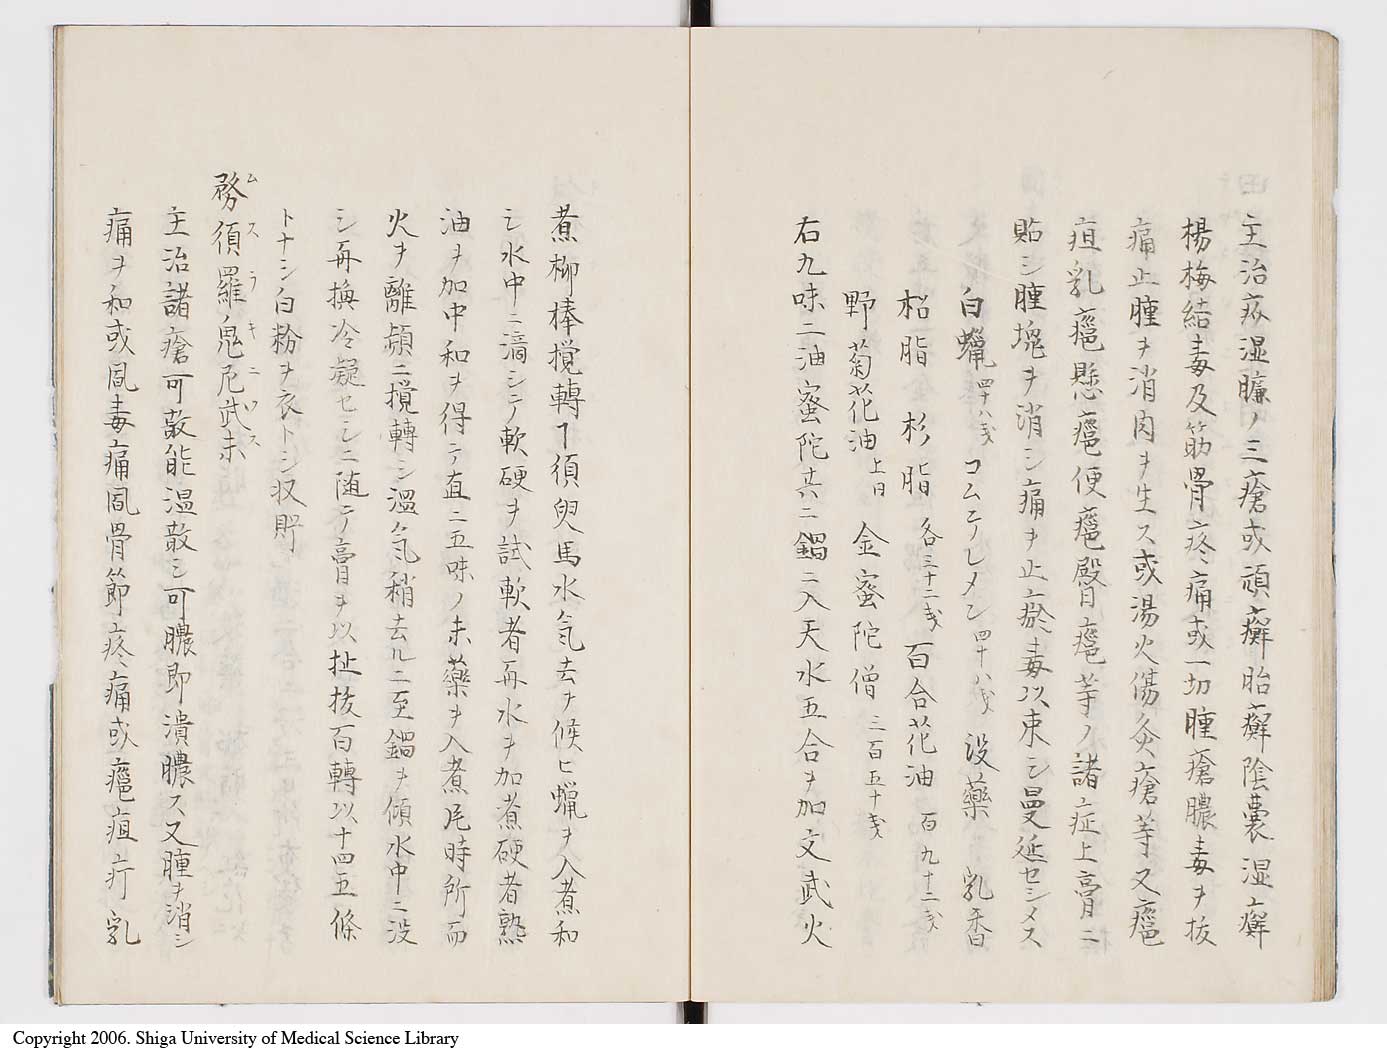 主治疥湿臁ノ三瘡或頑癬胎癬陰囊湿癬
楊梅結毒及筋骨疼痛或一切腫瘡膿毒ヲ抜
痛止腫ヲ消肉ヲ生ス或湯火傷灸瘡等又癰
疽乳癰懸癰便癰臀癰等ノ諸症上膏ニ
貼シ腫塊ヲ消シ痛ヲ止瘀毒以束シ曼延セシメス
白蠟 四十八戔 コムテレメン 四十八戔 没藥 乳香
枩脂 杉脂 各三十二戔 百合花油 百九十二戔
野菊花油 上同 金蜜陀僧 三百五十戔
右九味二油蜜陀共ニ鍋ニ入天水五合ヲ加文武火
煮柳棒撹轉ヿ須臾馬水氣去ヲ候ヒ蝋ヲ入煮和
シ水中ニ滴シテ軟硬ヲ試軟者再水ヲ加煮硬者熟
油ヲ加中和ヲ得テ直ニ五味ノ末藥ヲ入煮片時所而
火ヲ離頻ニ撹轉シ温氣稍去ルニ至鍋ヲ傾水中ニ没
シ再換冷凝セシニ随テ膏ヲ以扯抜百轉以十四五條
トナシ白粉ヲ衣トシ収貯
務須羅ノ鬼尼武末
ムスラキニフス
主治諸瘡可散能温散シ可膿即潰膿ス又腫ヲ消シ
痛ヲ和或風毒痛風骨節疼痛或癰疽疔乳